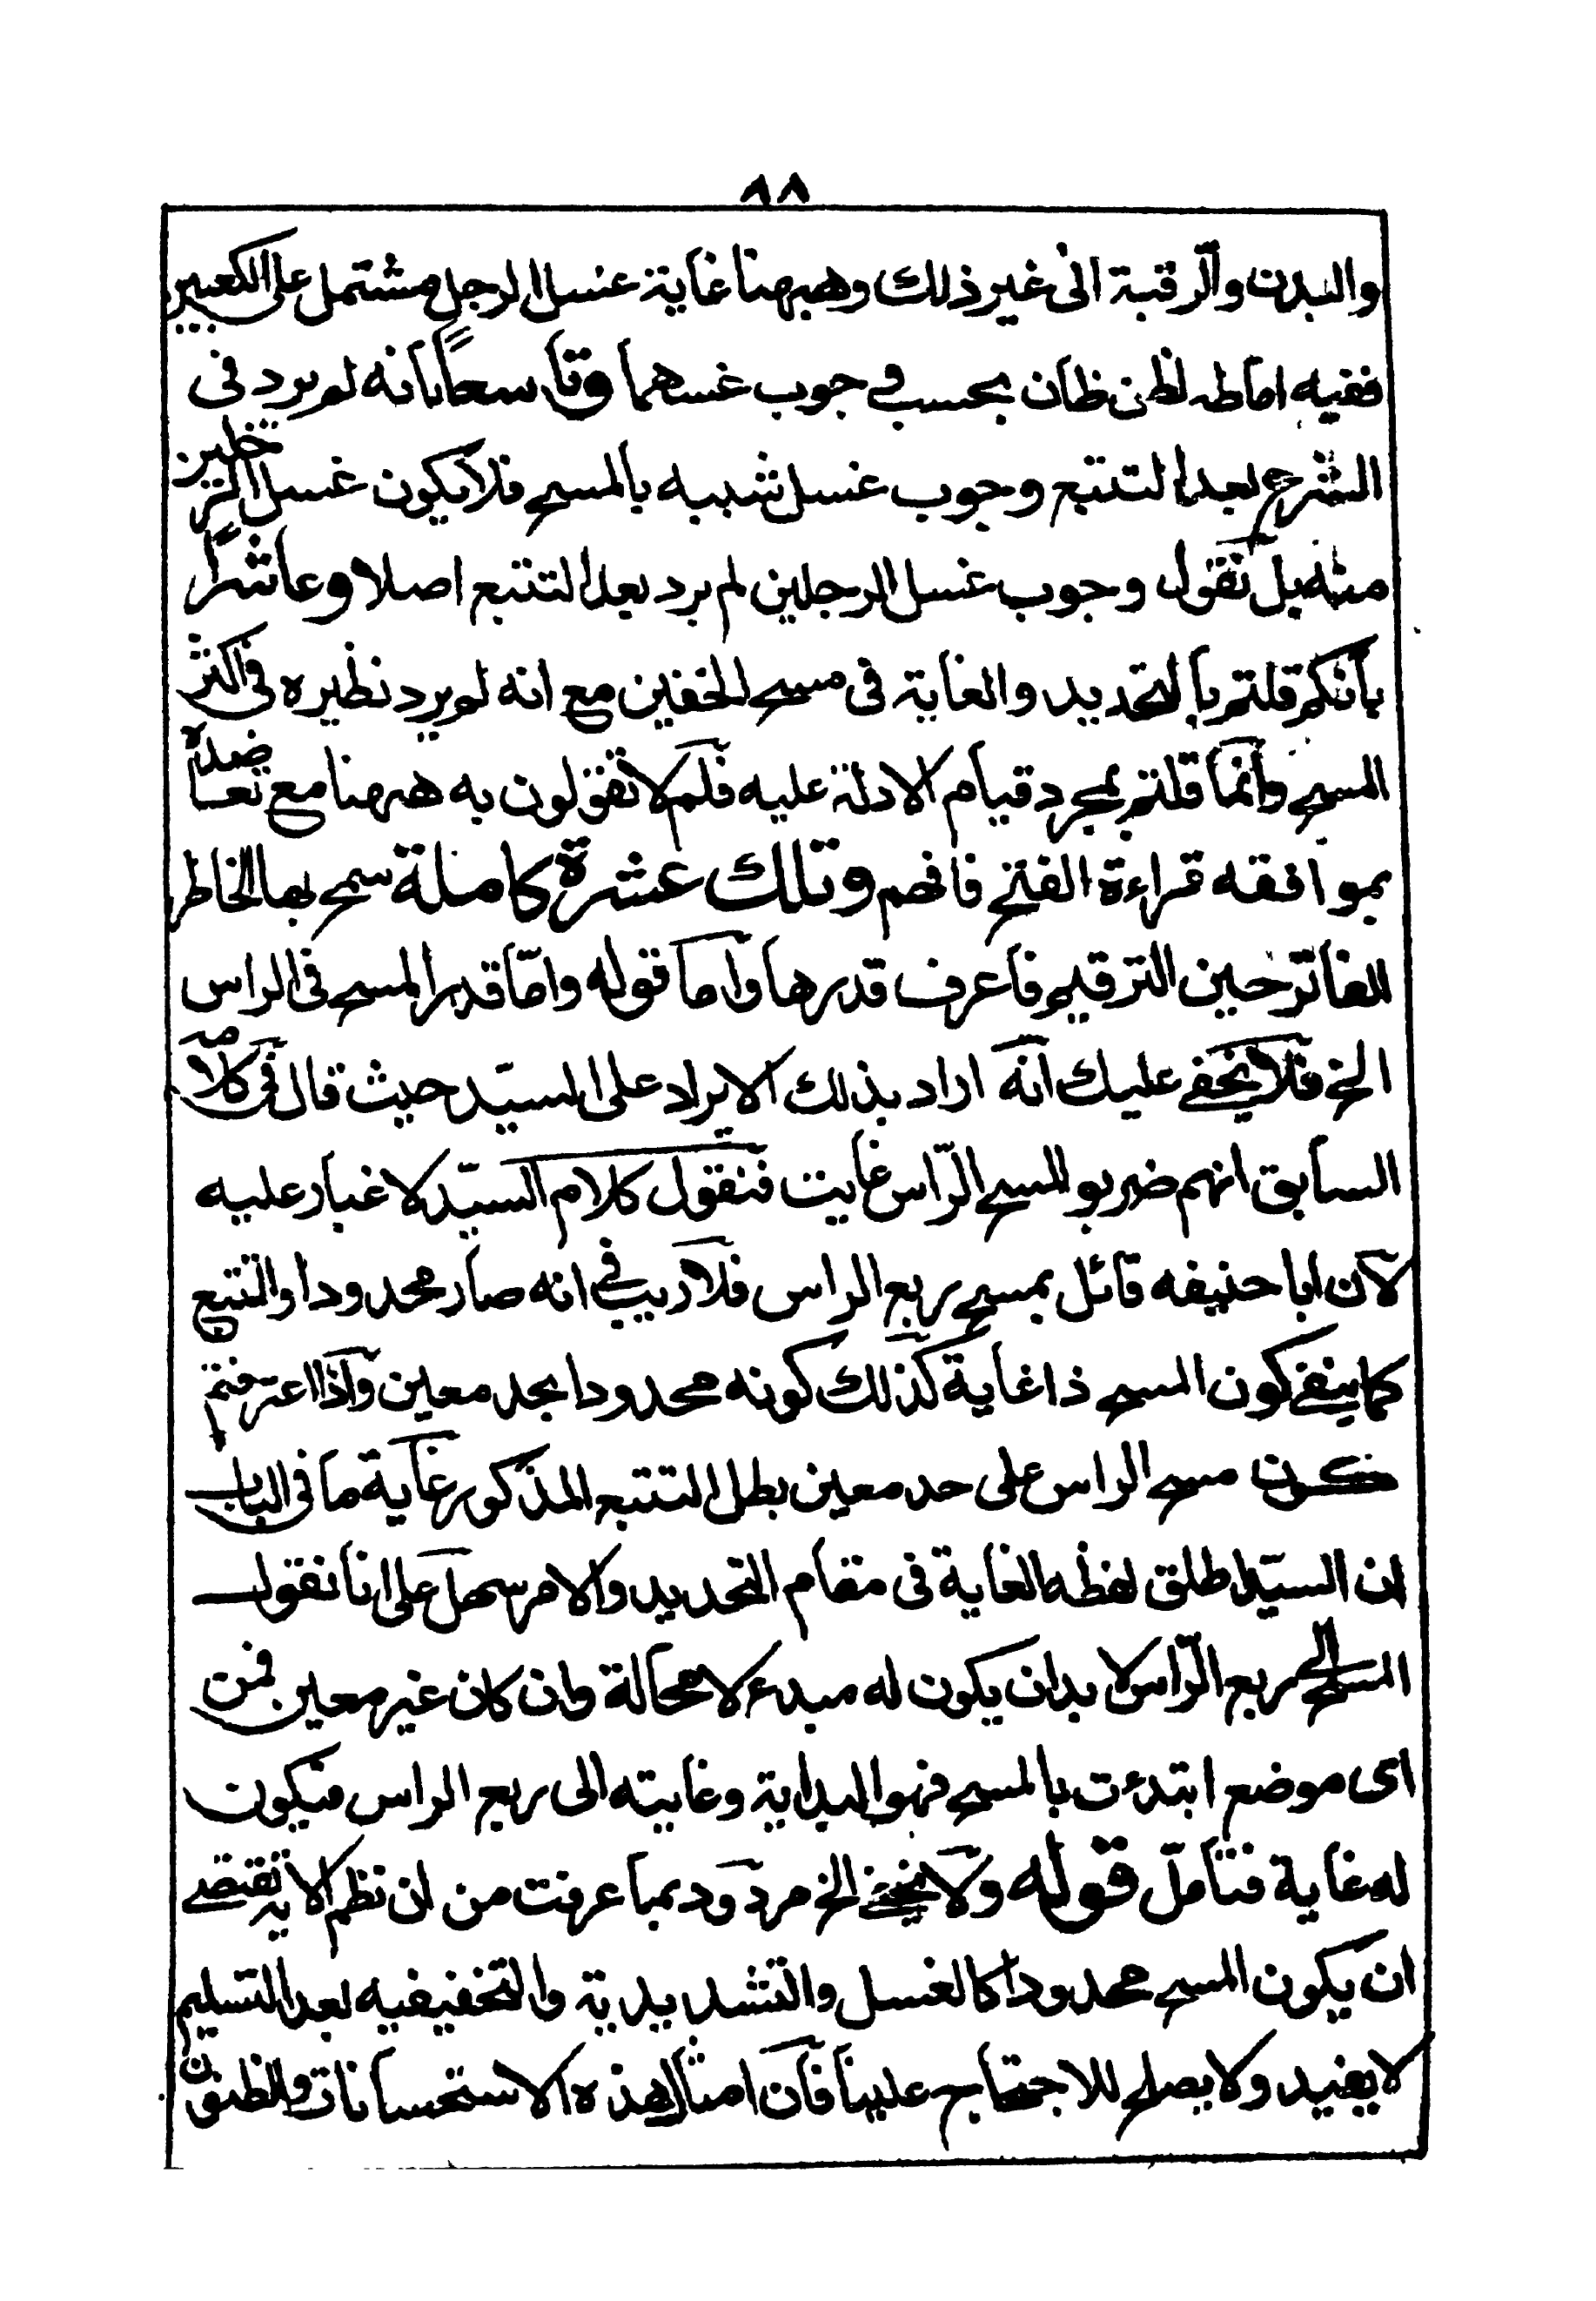 ٩٨
والبدن والرقبة الى غير ذلك وههنا غاية غسل الرجل مشتمل على الكعبين
ففيه اماطه لظن ظان بحسب وجوب غسهما وتاسعاً بانه لم يرد فى
الشرع بعد التتبع وجوب غسل شبيه بالمسح فلا يكون غسل الرجلين
مثله بل نقول وجوب غسل الرجلين لم يرد بعد التتبع اصلا وعاشراً
بانكم قلتم بالتحديد والغاية فى مسح الخفين مع انه لم يرد نظيره فى اكثر
المسح وانما قلتم بمجرد قيام الادلة عليه فلم لا تقولون به ههنا مع تعاضده
بموافقه قراءة الفتح فافهم وتلك عشرة كاملة سمح بها الخاطر
الفاتر حين الترقيم فاعرف قدرها واما قوله وامّا قدر المسح فى الراس
الخ فلا يخفى عليك انّه اراد بذلك الايراد على السيّد حيث قال فى كلامه
السابق انهم ضربو المسح الرّاس غايت فنقول كلام السيّد لا غبار عليه
لآن ابا حنيفه قائل بمسح ربع الراس فلا ريب فى انه صار محدودا والتتبع
كما ينفى كون المسح ذا غاية كذلك كونه محدودا بحد معين واذا اعترفتم
كون مسح الراس على حد معين بطل التتبع المذكور غاية ما فى الباب
ان السيّد اطلق لفظه الغاية فى مقام التحديد والامر سهل على انا نقول
المسح الى ربع الرّاس لا بدان يكون له مبدء لا محالة وان كان غير معين فمن
اى موضع ابتدءت بالمسح فهو البداية وغايته الى ربع الراس فيكون
له غاية فتامل قوله ولا يخفى الخ مردود بما عرفت من ان نظم الاية تقتضى
ان يكون المسح محدودا كالغسل والتشديدية والتخفيفيه بعد التسليم
لا يفيد ولا يصلح للاحتجاج علينا فآن امثال هذه الاستحسانات والظنون